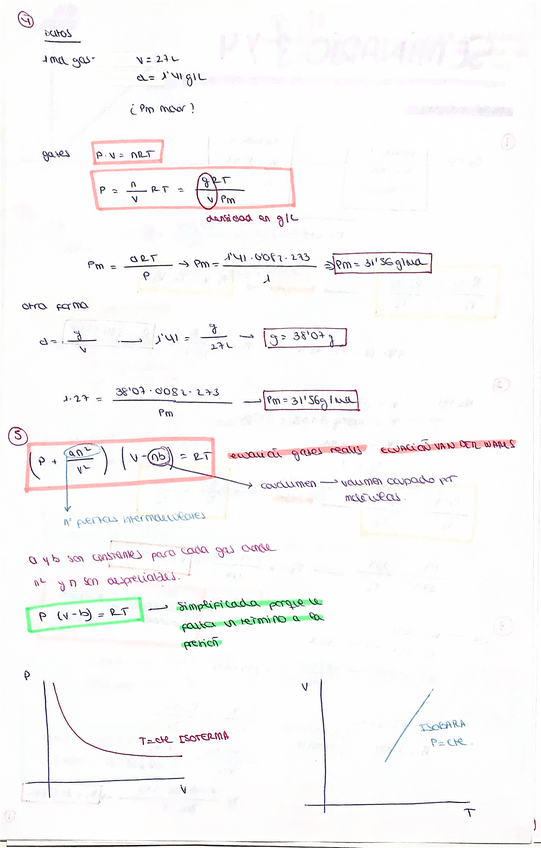 4
DATOS
1 mol gas- V = 27L
d = 1'41 g/L
¿Pm molar?
gases P·V = nRT
P = n/V RT = gRT/V Pm
densidad en g/L
Pm = dRT/P → Pm = 1'41·0'082·273/1 ⇒ Pm = 31'56 g/mol
otra forma
d = g/V → 1'41 = g/27L → g = 38'07 g
1·27 = 38'07·0'082·273/Pm → Pm = 31'56 g/mol
5
(P + an²/V²) (V-nb) = RT ecuación gases reales ECUACIÓN VAN DER WAALS
covolumen → volumen ocupado por
moléculas.
nº fuerzas intermoleculares
a y b son constantes para cada gas donde
n² y n son despreciables.
P (V-b) = RT → Simplificada porque le
falta un término a la
presión
P
T=cte ISOTERMA
V
V
ISOBARA
P=cte.
T